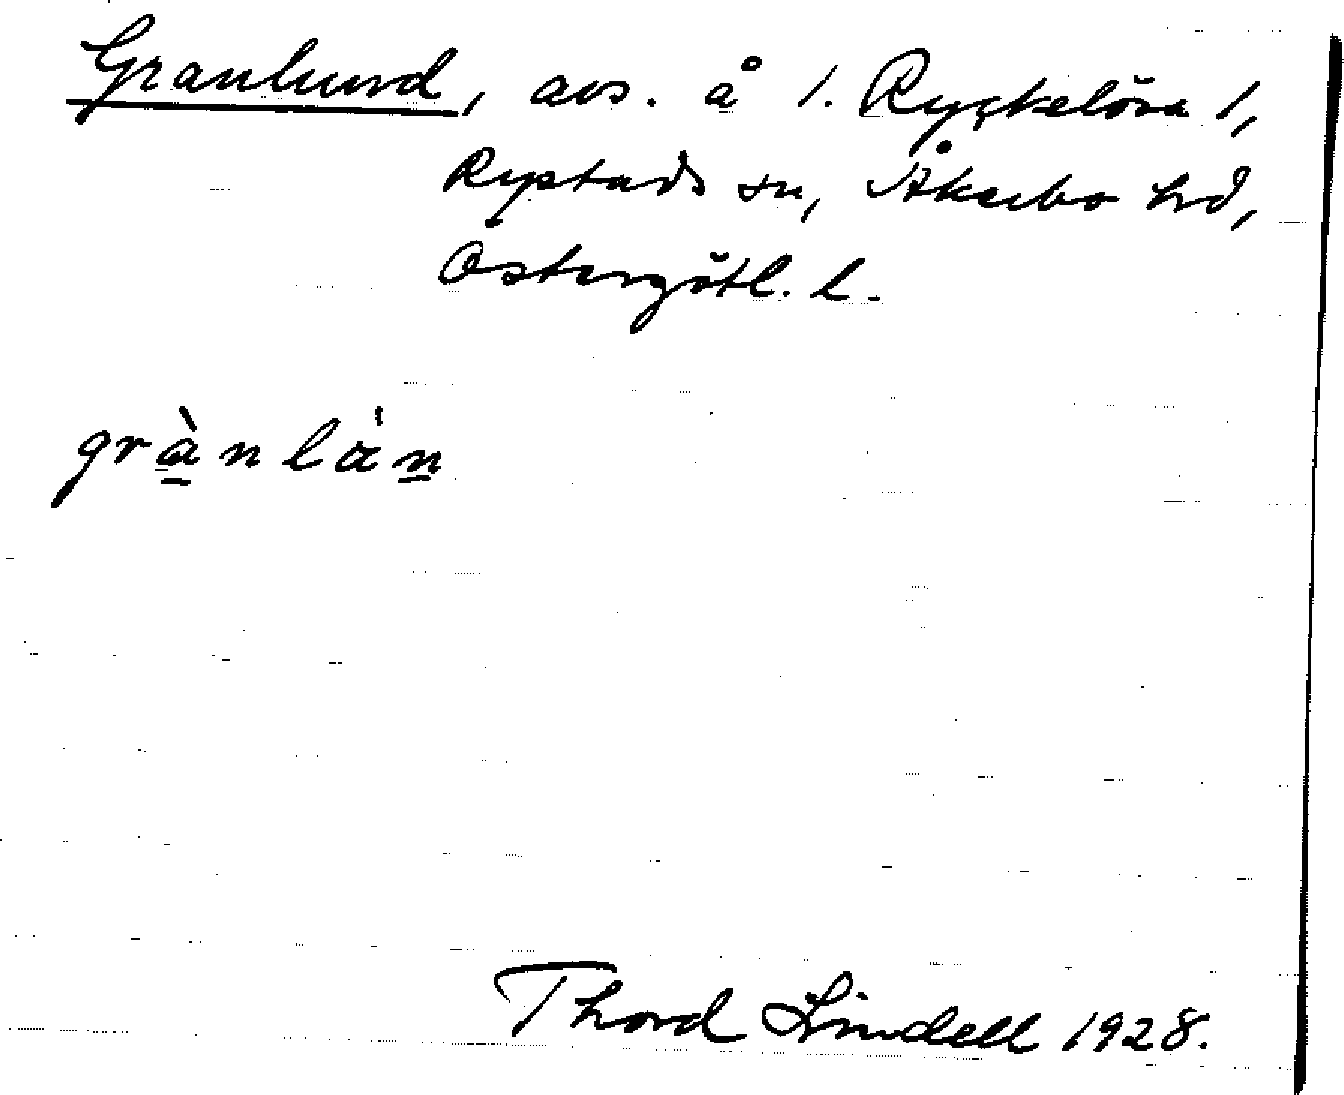 Granlund, avs. å 1. Ryckelösa 1,
Rystads sn, Åkerbo hd,
Östergötl. l.
grànlán
Thord Lindell 1928.